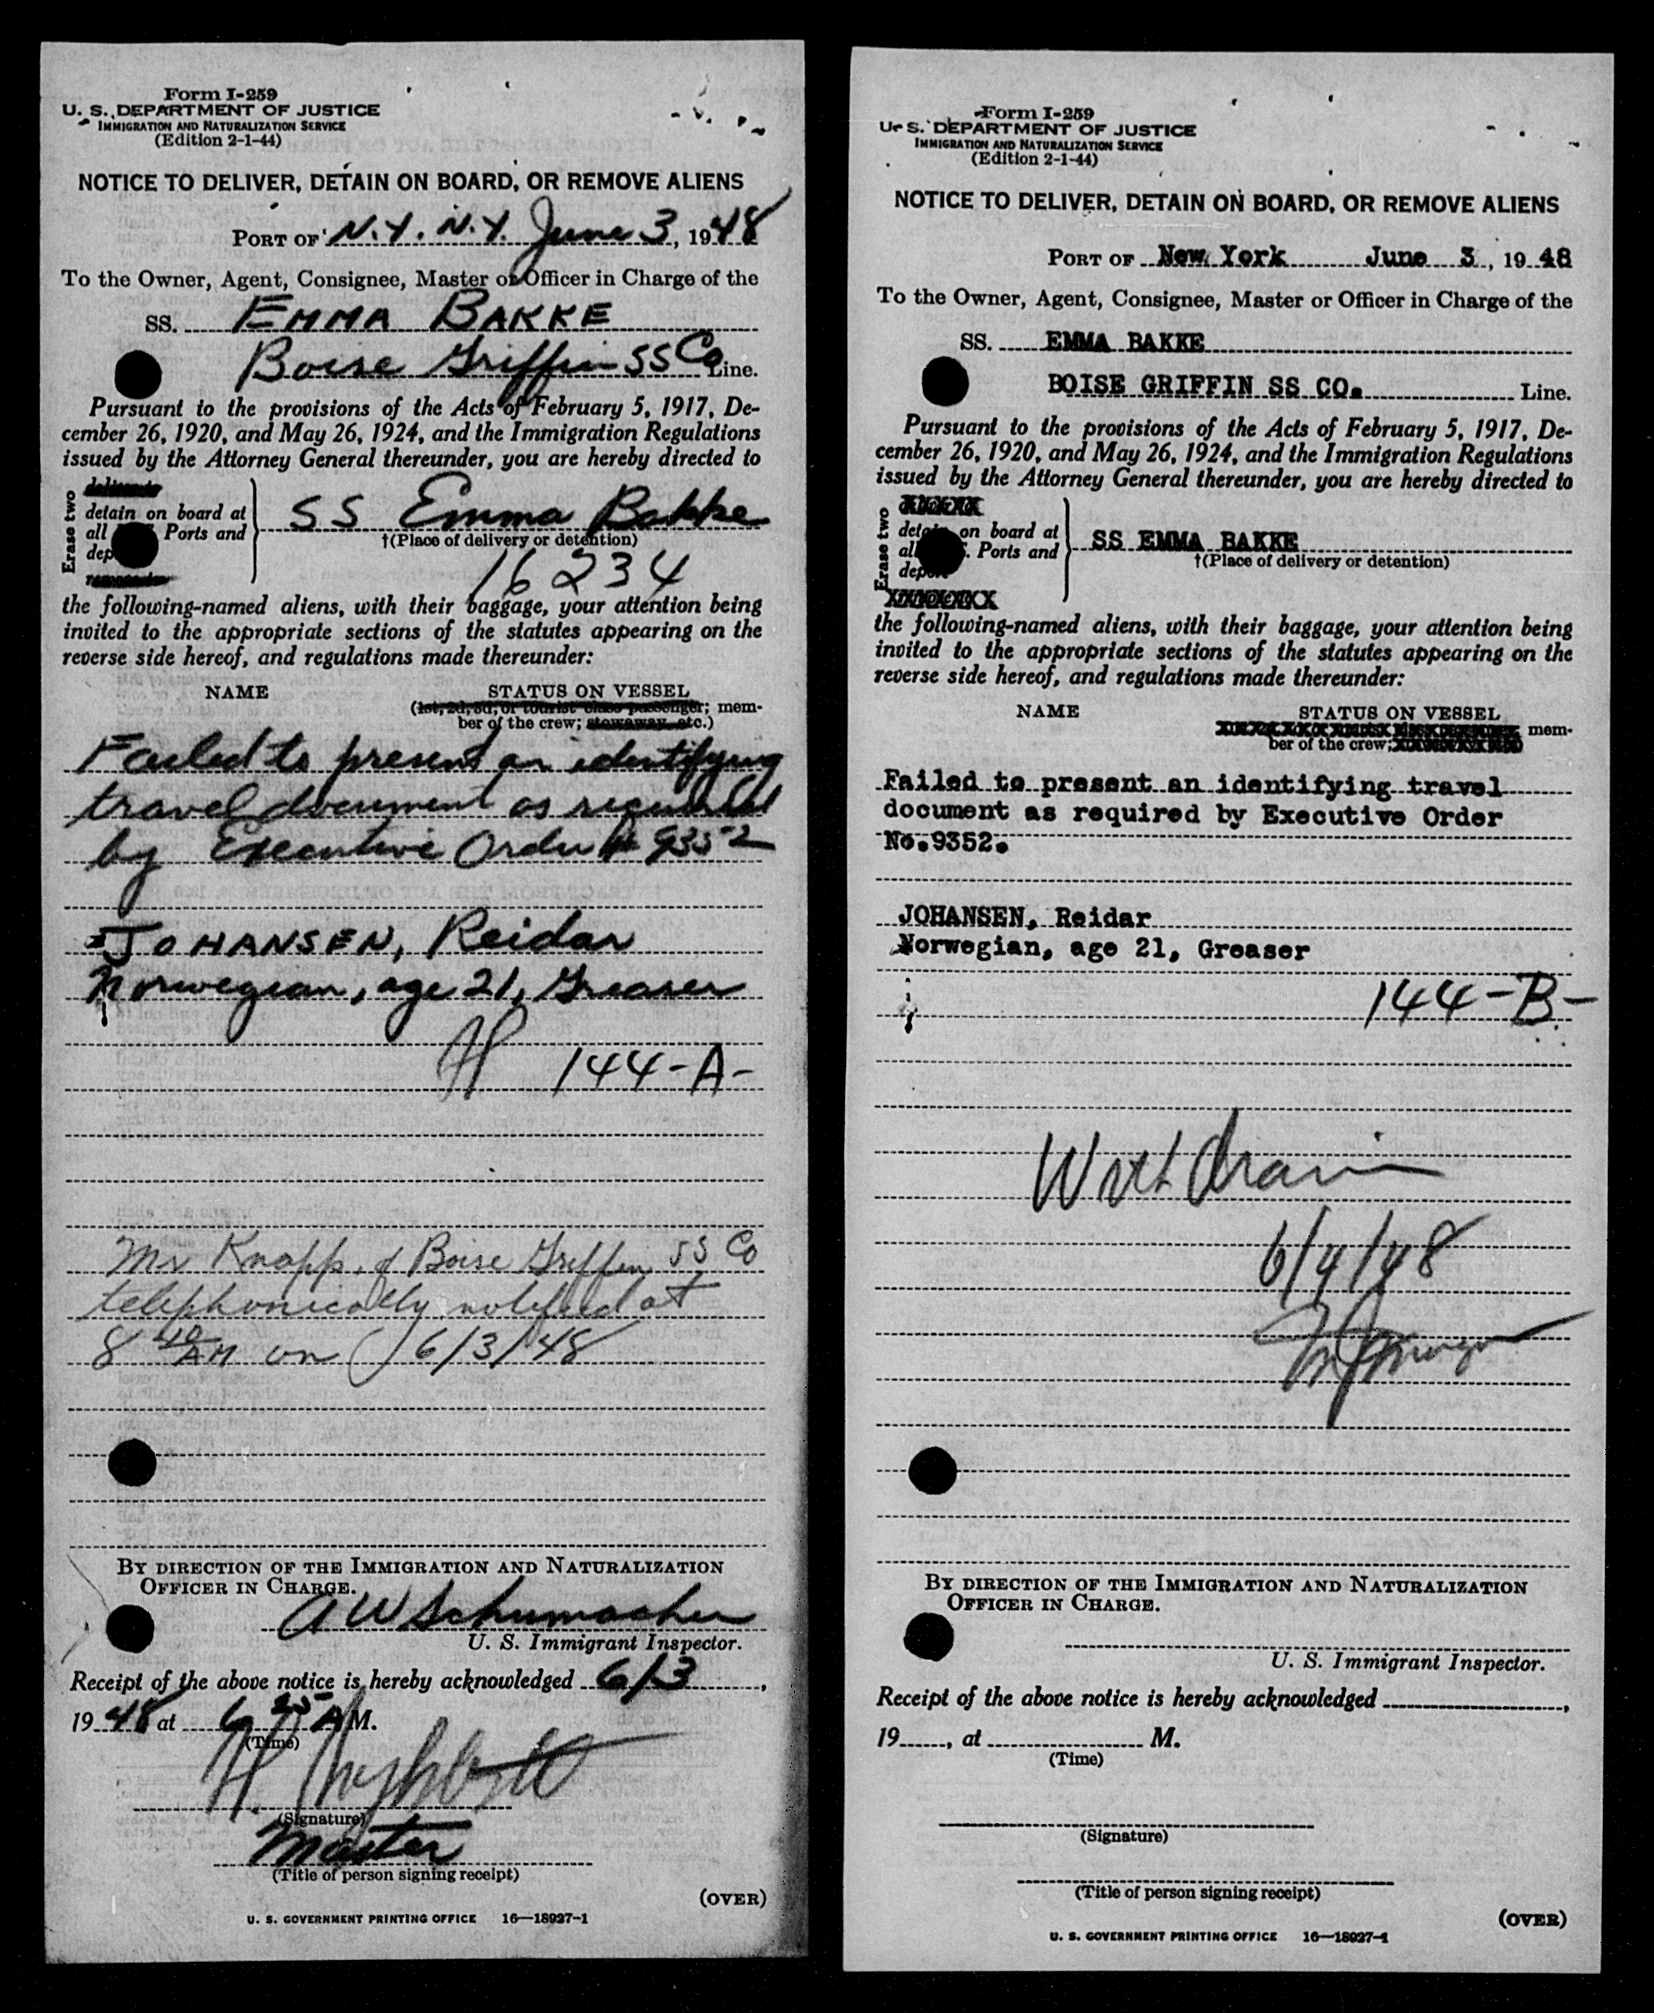 Form I-259
U. S. DEPARTMENT OF JUSTICE
IMMIGRATION AND NATURALIZATION SERVICE
(Edition 2-1-44)
NOTICE TO DELIVER, DETAIN ON BOARD, OR REMOVE ALIENS
PORT OF N.Y. N.Y. June 3, 1948
To the Owner, Agent, Consignee, Master or Officer in Charge of the
SS. EMMA BAKKE
Boise Griffin SS Co Line.
Pursuant to the provisions of the Acts of February 5, 1917, De-
cember 26, 1920, and May 26, 1924, and the Immigration Regulations
issued by the Attorney General thereunder, you are hereby directed to
Erase two
detain on board at
all Ports and
dep
SS Emma Bakke
†(Place of delivery or detention)
16234
the following-named aliens, with their baggage, your attention being
invited to the appropriate sections of the statutes appearing on the
reverse side hereof, and regulations made thereunder:
NAME STATUS ON VESSEL
(1st, 2d, 3d, or tourist class passenger; mem-
ber of the crew; stowaway, etc.)
Failed to present an identifying
travel document as required
by Executive Order # 9352
JOHANSEN, Reidar
Norwegian, age 21, Greaser
144-A-
Mr Knapp of Boise Griffin SS Co
telephonically notified at
8 40 AM on 6/3/48
BY DIRECTION OF THE IMMIGRATION AND NATURALIZATION
OFFICER IN CHARGE.
A W Schumacher
U. S. Immigrant Inspector.
Receipt of the above notice is hereby acknowledged 6/3,
1948 at 6 25 A M.
(Time)
H.
(Signature)
Master
(Title of person signing receipt)
(OVER)
U. S. GOVERNMENT PRINTING OFFICE 16—18927-1
Form I-259
U. S. DEPARTMENT OF JUSTICE
IMMIGRATION AND NATURALIZATION SERVICE
(Edition 2-1-44)
NOTICE TO DELIVER, DETAIN ON BOARD, OR REMOVE ALIENS
PORT OF New York June 3, 1948
To the Owner, Agent, Consignee, Master or Officer in Charge of the
SS. EMMA BAKKE
BOISE GRIFFIN SS CO. Line.
Pursuant to the provisions of the Acts of February 5, 1917, De-
cember 26, 1920, and May 26, 1924, and the Immigration Regulations
issued by the Attorney General thereunder, you are hereby directed to
Erase two
detain on board at
all S. Ports and
deport
SS EMMA BAKKE
†(Place of delivery or detention)
the following-named aliens, with their baggage, your attention being
invited to the appropriate sections of the statutes appearing on the
reverse side hereof, and regulations made thereunder:
NAME STATUS ON VESSEL
mem-
ber of the crew;
Failed to present an identifying travel
document as required by Executive Order
No.9352.
JOHANSEN, Reidar
Norwegian, age 21, Greaser
144-B-
Withdrawn
6/4/48
BY DIRECTION OF THE IMMIGRATION AND NATURALIZATION
OFFICER IN CHARGE.
U. S. Immigrant Inspector.
Receipt of the above notice is hereby acknowledged ,
19 , at M.
(Time)
(Signature)
(Title of person signing receipt)
(OVER)
U. S. GOVERNMENT PRINTING OFFICE 16—18927-1